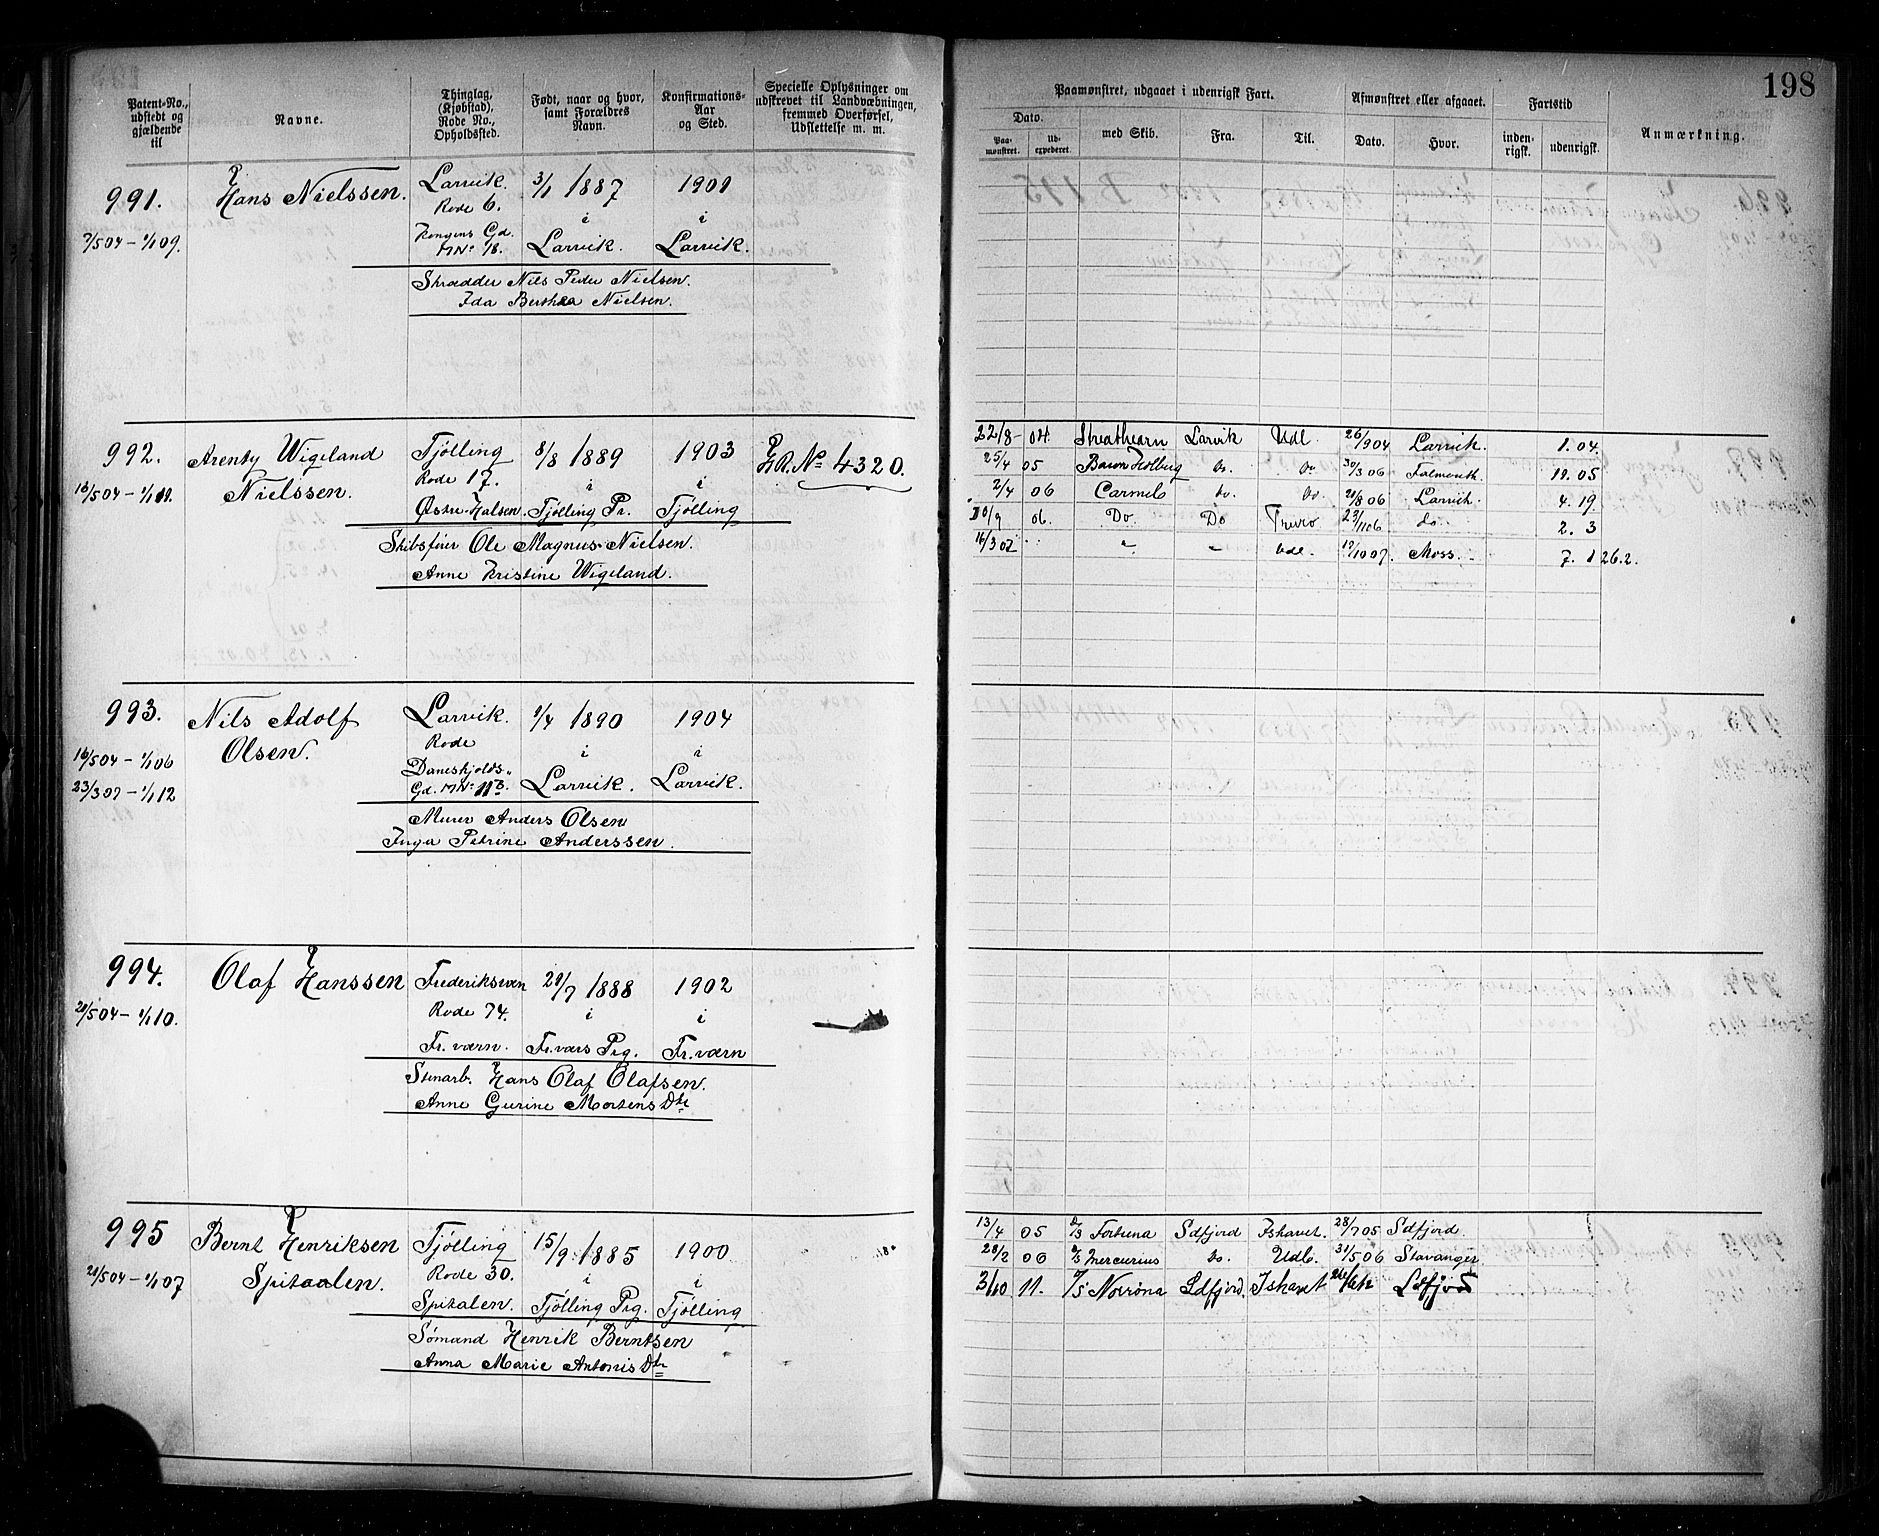 198
Patent-No., udstedt og gjældende til
Navne.
Thinglag, (Kjøbstad), Rode No., Opholdssted.
Født, naar og hvor, samt Forældres Navn.
Konfirmations-Aar og Sted.
Specielle Oplysninger om udskrevet til Landværbningen, fremmed Overførsel, Udslettelse m. m.
Paamønstret, udgaaet i udenrigsk Fart.
Dato.
Paa-mønstret.
Ud-expederet.
med Skib.
Fra.
Til.
Afmønstret eller afgaaet.
Dato.
Hvor.
Fartstid
inden-rigsk.
udenrigsk.
Anmærkning.
991. Hans Nielssen. Larvik. 3/1 1887 1901
Rode 6. i i
7/504 – 1/109. Kongens Gd. MNo 18. Larvik. Larvik.
Skrædder Nils Peder Nielsen.
Ida Berthea Nielsen.
992. Arenty Wigeland Tjølling 8/8 1889 1903 ER. No 4320.
Nielssen. Rode 17. i i
16/504 – 1/111. Østre Halsen. Tjølling Pr. Tjølling
Skibsfører Ole Magnus Nielsen.
Anne Kristine Wigeland.
22/8 – 04. Strathearn Larvik Udl. 26/904 Larvik. 1. 04.
25/4 05 Baron Holberg Do. Do 30/3 06 Falmouth 11. 05
2/4 06 Carmel Do. Do. 21/8 06 Larvik. 4. 19
10/9 06. Do. Do Truro 23/1106 do. 2. 3
16/3 07 " " Udl. 17/1007. Moss. 7. 1 26.2.
993. Nils Adolf Larvik. 1/4 1890 1904
Olsen. Rode i i
16/504 – 1/106 Daneskjolds-
23/307 – 1/112 Gd. MNo 11B. Larvik. Larvik.
Murer Anders Olsen
Inga Petrine Anderssen.
994. Olaf Hanssen Frederiksværn 21/7 1888 1902
Rode 74. i i
21/504 – 1/110. Fr. værn. Fr. værs Prg. Fr. værn
Stenarb. Hans Olaf Olafsen.
Anne Gurine Mortens Dtr
995 Bernt Henriksen Tjølling 15/9 1885 1900
Spitaalen. Rode 30. i i
21/504 – 1/107 Spitalen. Tjølling Prg. Tjølling
Sømand Henrik Berntsen
Anna Marie Antonis Dtr
13/4 05 D/S Fortuna Sdfjord Ishavet. 28/705 Sdfjord.
28/2 06 D/S Mercurius Do. Udl. 31/506 Stavanger
3/10 11. D/S Norrøna Sdfjord. Ishavet Sdfjord